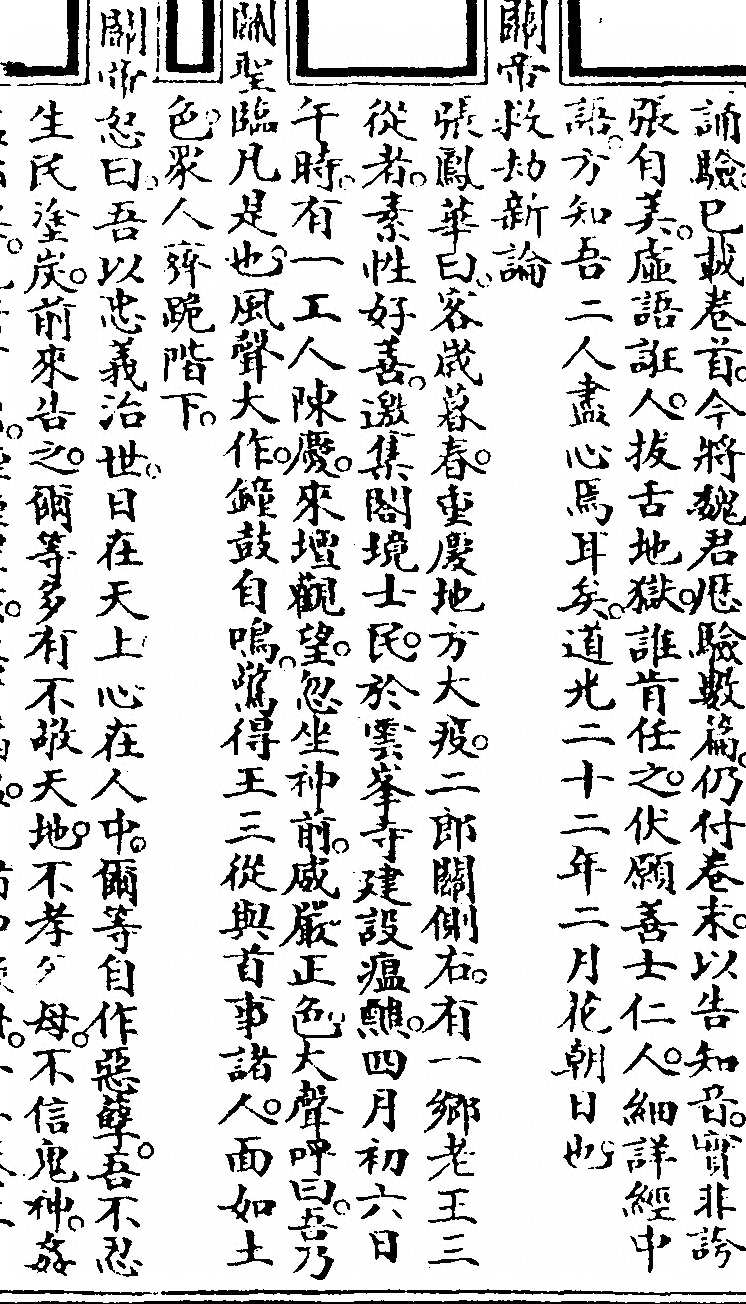 誦驗。已載卷首。今將魏君歷驗數篇。仍付卷末。以告知音。實非誇
張自美。虛語誑人。拔舌地獄。誰肯任之。伏願善士仁人。細詳經中
語。方知吾二人盡心焉耳矣。道光二十二年二月花朝日也
關帝救劫新論
張鳳華曰。客歲暮春。重慶地方大疫。二郎關側右。有一鄉老王三
從者。素性好善。邀集閤境士民。於雲峯寺建設瘟醮。四月初六日
午時。有一工人陳慶。來壇觀望。忽坐神前。威嚴正色。大聲呼曰。吾乃
關聖臨凡是也。風聲大作。鐘鼓自鳴。驚得王三從與首事諸人。面如土
色。衆人齊跪階下。
關帝怒曰。吾以忠義治世。日在天上心在人中。爾等自作惡孽。吾不忍
生民塗炭。前來告之。爾等多有不敬天地。不孝父母。不信鬼神。姦